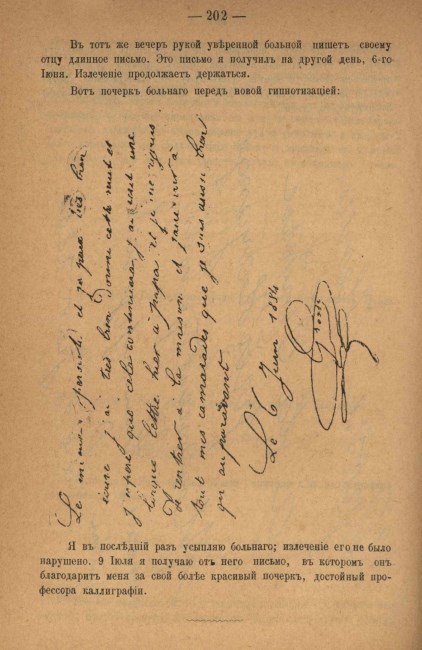 — 202 —
Въ тотъ же вечеръ рукой увѣренной больной пишетъ своему
отцу длинное письмо. Это письмо я получилъ на другой день, 6-го
Іюня. Излеченіе продолжаетъ держаться.
Вотъ почеркъ больнаго передъ новой гипнотизаціей:
Le mieux persiste et je peux très bien
écrire j'ai très bien dormi cette nuit et
j'espère que cela continuera j'ai écrit une
longue lettre hier à papa et je me rejouis
de rentrer à la maison et faire voir à
tout mes camarades que je suis aussi bon
qu'auparavant
Le 6 Juin 1884
Я въ послѣдній разъ усыпляю больнаго; излеченіе его не было
нарушено. 9 Іюля я получаю отъ него письмо, въ которомъ онъ
благодаритъ меня за свой болѣе красивый почеркъ, достойный про-
фессора каллиграфіи.